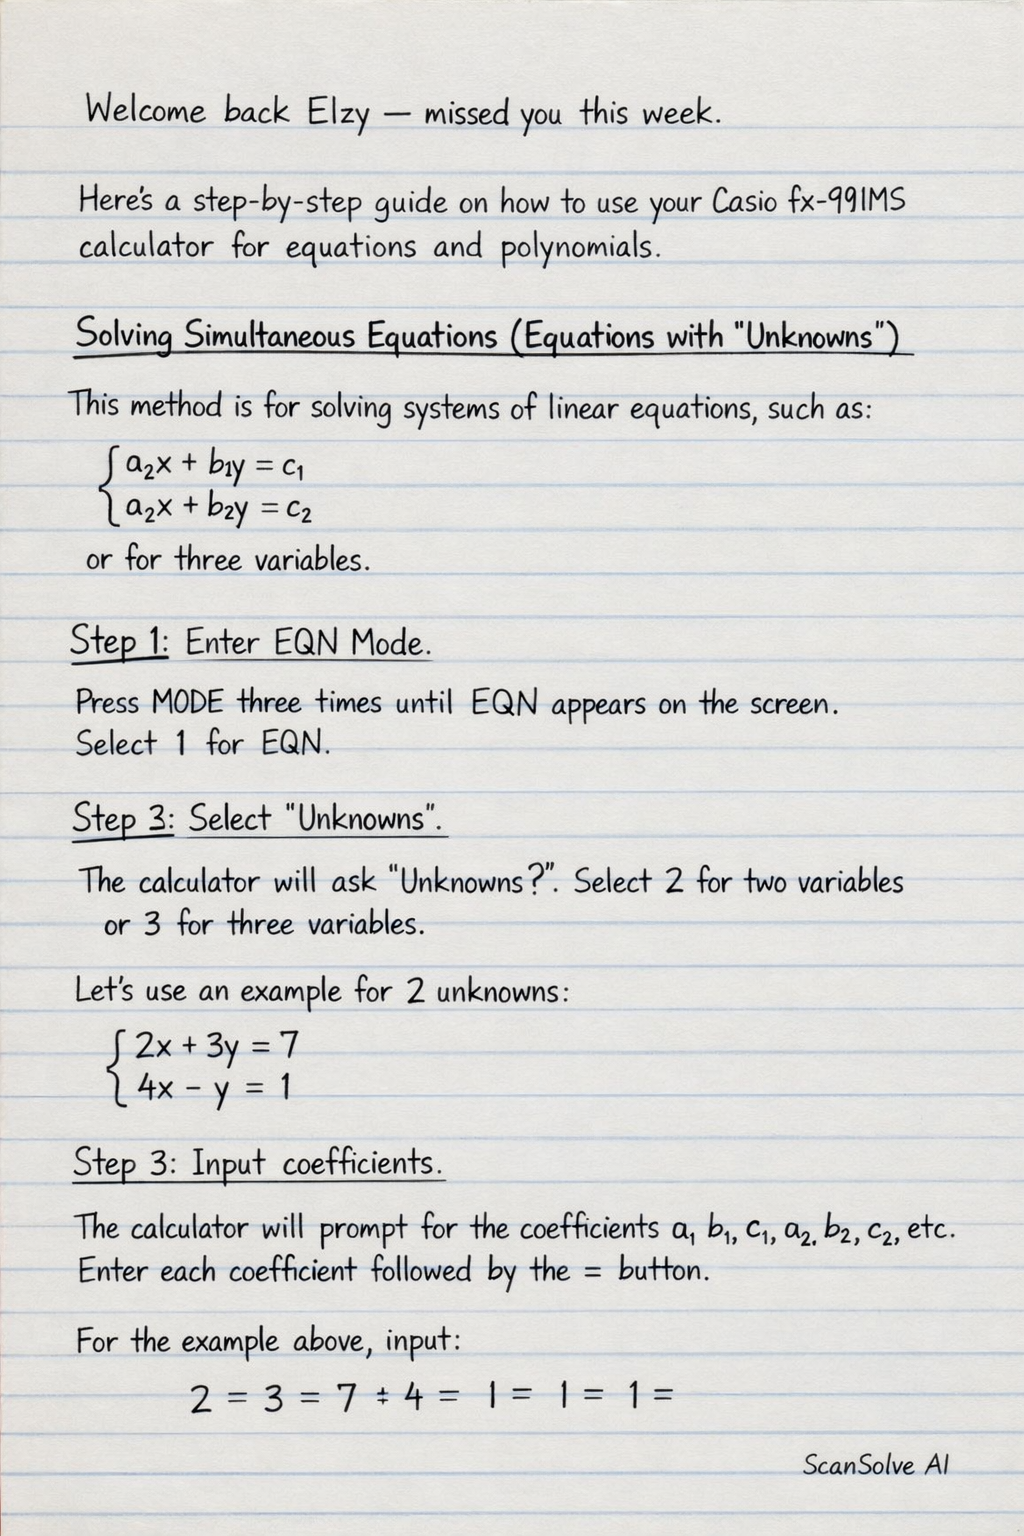 Welcome back Elzy — missed you this week.
Here's a step-by-step guide on how to use your Casio fx-991MS
calculator for equations and polynomials.
Solving Simultaneous Equations (Equations with "Unknowns")
This method is for solving systems of linear equations, such as:
a₂x + b₁y = c₁
a₂x + b₂y = c₂
or for three variables.
Step 1: Enter EQN Mode.
Press MODE three times until EQN appears on the screen.
Select 1 for EQN.
Step 3: Select "Unknowns".
The calculator will ask "Unknowns?". Select 2 for two variables
or 3 for three variables.
Let's use an example for 2 unknowns:
2x + 3y = 7
4x - y = 1
Step 3: Input coefficients.
The calculator will prompt for the coefficients a₁ b₁, c₁, a₂. b₂, c₂, etc.
Enter each coefficient followed by the = button.
For the example above, input:
2 = 3 = 7 ÷ 4 = 1 = 1 = 1 =
ScanSolve AI